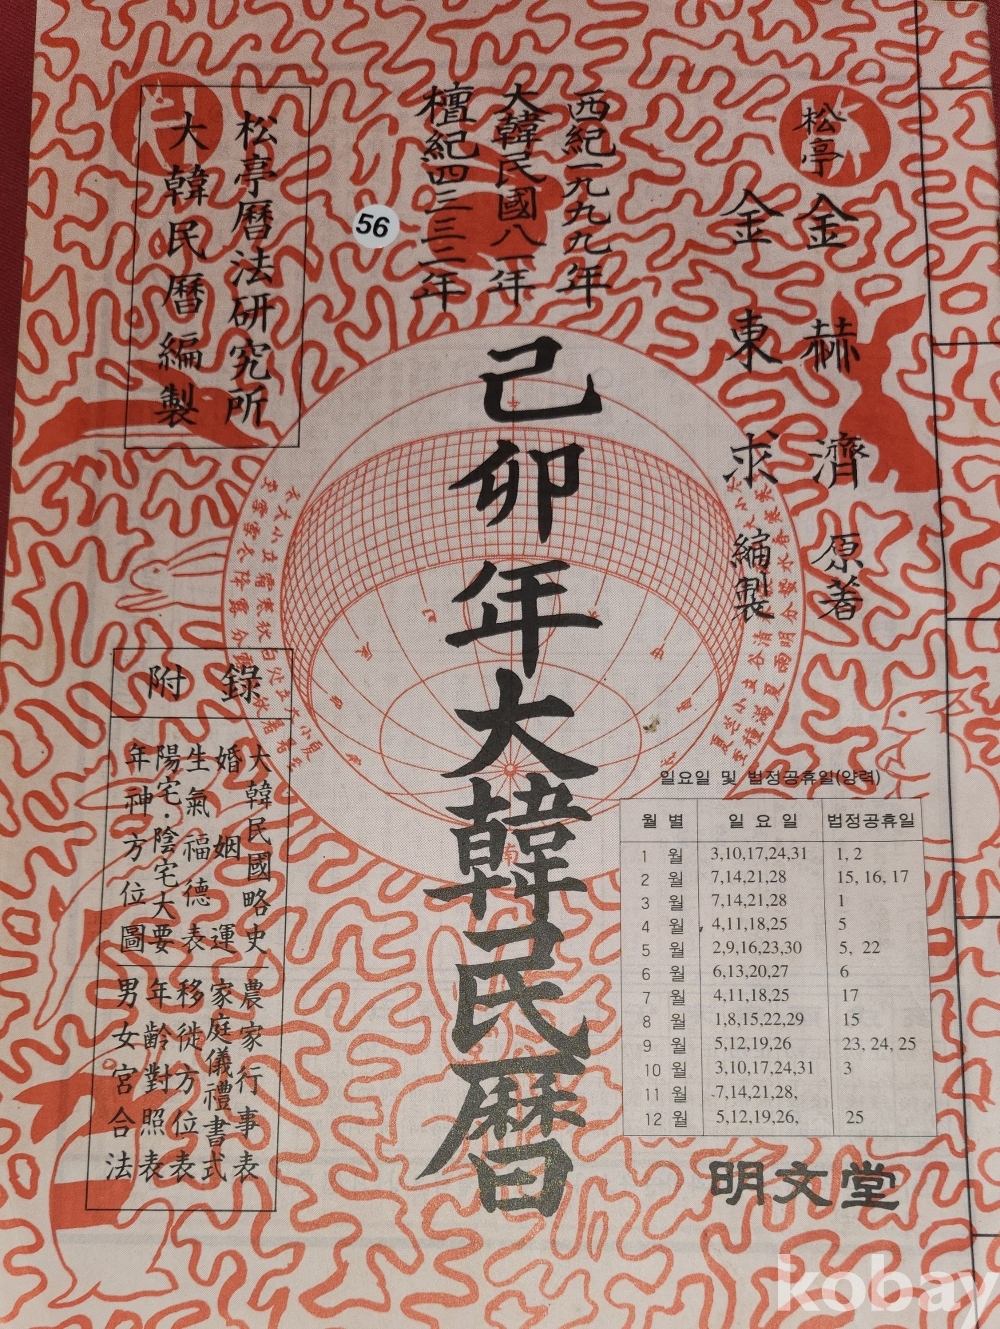 松亭
金赫濟 原著
金東求 編製
西紀一九九九年
大韓民國八一年
檀紀四三三二年
56
松亭曆法研究所
大韓民曆編製
己卯年大韓民曆
附錄
大韓民國略史
婚姻運
生氣福德表
陽宅·陰宅大要
年神方位圖
農家行事表
家庭儀禮書式
移徙方位表
年齡對照表
男女宮合法
일요일 및 법정공휴일(양력)
월 별 일 요 일 법정공휴일
1 월 3,10,17,24,31 1, 2
2 월 7,14,21,28 15, 16, 17
3 월 7,14,21,28 1
4 월 4,11,18,25 5
5 월 2,9,16,23,30 5, 22
6 월 6,13,20,27 6
7 월 4,11,18,25 17
8 월 1,8,15,22,29 15
9 월 5,12,19,26 23, 24, 25
10 월 3,10,17,24,31 3
11 월 7,14,21,28,
12 월 5,12,19,26, 25
明文堂
南
kobay